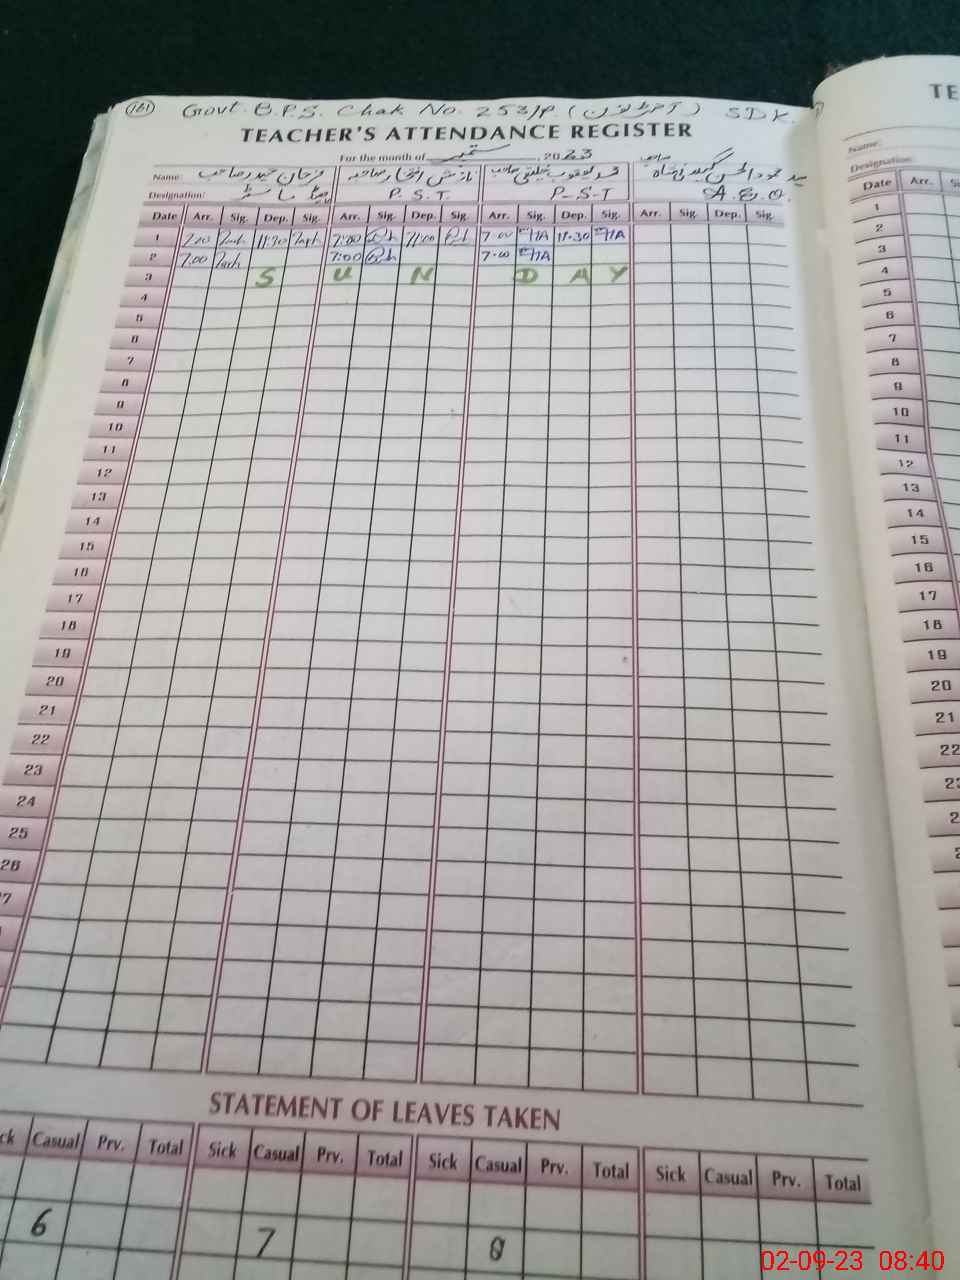 161 Govt. B.P.S. Chak No. 253/P. ( ) SDK.
TEACHER'S ATTENDANCE REGISTER
For the month of ستمبر, 2023
Name: فرحان حیدر صاحب نازش افتخار صاحبہ صاحب
Designation: ہیڈ ماسٹر P.S.T. P-S-T A.E.O.
Date Arr. Sig. Dep. Sig. Arr. Sig. Dep. Sig. Arr. Sig. Dep. Sig. Arr. Sig. Dep. Sig.
1 7:00 11:30 7:00 11:00 7-00 11-30
2 7:00 7:00 7-00
3 S U N D A Y
4
5
6
7
8
9
10
11
12
13
14
15
16
17
18
19
20
21
22
23
24
25
26
STATEMENT OF LEAVES TAKEN
Casual Prv. Total Sick Casual Prv. Total Sick Casual Prv. Total Sick Casual Prv. Total
6 7 8
TE
Name:
Designation:
Date Arr.
1
2
3
4
5
6
7
8
9
10
11
12
13
14
15
16
17
18
19
20
21
22
02-09-23 08:40